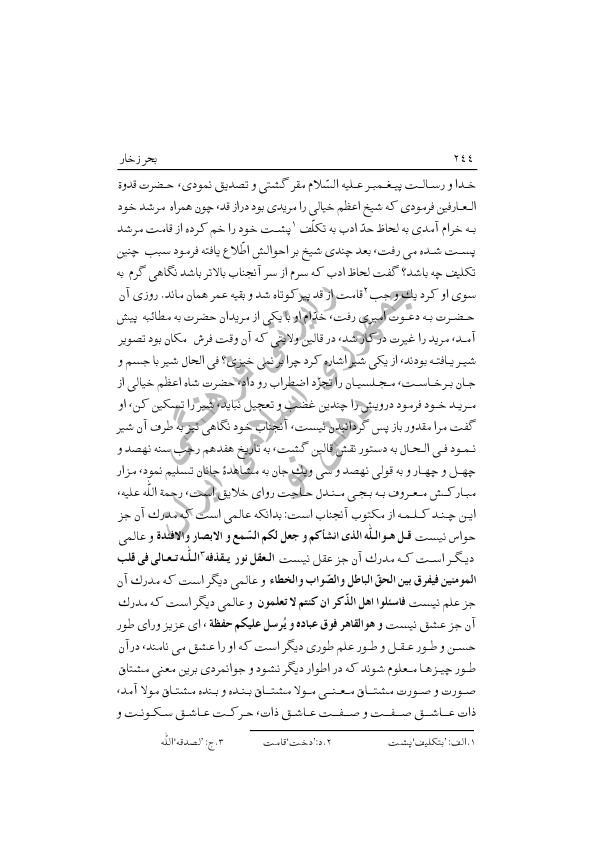 ٢٤٤ بحر زخار
خدا و رسالت پیغمبر علیه السّلام مقر گشتی و تصدیق نمودی، حضرت قدوة
العارفین فرمودی که شیخ اعظم خیالی را مریدی بود دراز قد، چون همراه مرشد خود
به خرام آمدی به لحاظ حدّ ادب به تکلّف ۱پشت خود را خم کرده از قامت مرشد
پست شده می رفت، بعد چندی شیخ بر احوالش اطّلاع یافته فرمود سبب چنین
تکلیف چه باشد؟ گفت لحاظ ادب که سرم از سر آنجناب بالاتر باشد نگاهی گرم به
سوی او کرد یك و جب ۲قامت از قد پیر کوتاه شد و بقیه عمر همان ماند. روزی آن
حضرت به دعوت امیری رفت، خدّام او با یکی از مریدان حضرت به مطائبه پیش
آمد، مرید را غیرت در کار شد، در قالین ولایتی که آن وقت فرش مکان بود تصویر
شیر یافته بودند، از یکی شیر اشاره کرد چرا بر نمی خیزی؟ فی الحال شیر با جسم و
جان برخاست، مجلسیان را تجرّد اضطراب رو داد، حضرت شاه اعظم خیالی از
مرید خود فرمود درویش را چندین غضب و تعجیل نباید، شیر را تسکین کن، او
گفت مرا مقدور باز پس گردانیدن نیست، آنجناب خود نگاهی تیز به طرف آن شیر
نمود فی الحال به دستور نقش قالین گشت، به تاریخ هفدهم رجب سنه نهصد و
چهل و چهار و به قولی نهصد و سی ویك جان به مشاهدۀ جانان تسلیم نمود، مزار
مبارکش معروف به بجی مندل حاجت روای خلایق است، رحمة اللّه علیه،
این چند کلمه از مکتوب آنجناب است: بدانکه عالمی است که مدرك آن جز
حواس نیست قل هواللّه الذی انشأکم و جعل لکم السّمع و الابصار والافئدة و عالمی
دیگر است که مدرك آن جز عقل نیست العقل نور یقذفه۳اللّه تعالی فی قلب
المومنین فیفرق بین الحقّ الباطل والصّواب والخطاء و عالمی دیگر است که مدرك آن
جز علم نیست فاسئلوا اهل الذّکر ان کنتم لا تعلمون و عالمی دیگر است که مدرك
آن جز عشق نیست و هوالقاهر فوق عباده و یُرسل علیکم حفظة، ای عزیز ورای طور
حسن و طور عقل و طور علم طوری دیگر است که او را عشق می نامند، در آن
طور چیزها معلوم شوند که در اطوار دیگر نشود و جوانمردی برین معنی مشتاق
صورت و صورت مشتاق معنی مولا مشتاق بنده و بنده مشتاق مولا آمد،
ذات عاشق صفت و صفت عاشق ذات، حرکت عاشق سکونت و
۱.الف: 'بتکلیف' پشت ۲.د: 'دخت' قامت ۳.ج: 'لصدقه' اللّه
جمهوری اسلامی ایران
رایزنی فرهنگی
دهلی نو